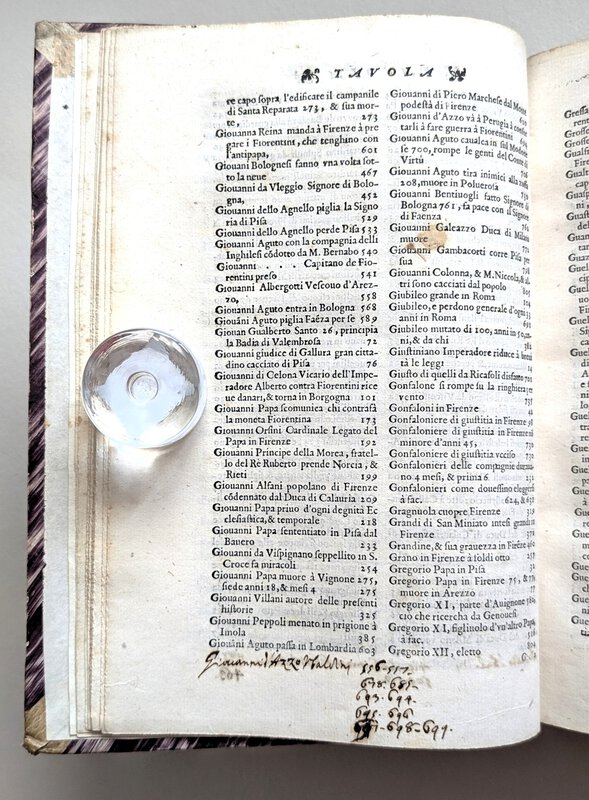 TAVOLA
re capo sopra l'edificare il campanile
di Santa Reparata 273, & sua mor-
te, 273
Giouanna Reina manda à Firenze à pre
gare i Fiorentini, che tenghino con
l'antipapa, 601
Giouani Bolognesi fanno vna volta sot-
to la neue 467
Giouanni da Vleggio Signore di Bolo-
gna, 452
Giouanni dello Agnello piglia la Signo
ria di Pisa 529
Giouanni dello Agnello perde Pisa 533
Giouanni Aguto con la compagnia delli
Inghilesi cōdotto da M. Bernabo 540
Giouanni . . . . Capitano de Fio-
rentini preso 541
Giouanni Albergotti Vescouo d'Arez-
zo, 558
Giouanni Aguto entra in Bologna 568
Giouāni Aguto piglia Faéza per se 589
Giouan Gualberto Santo 26, principia
la Badia di Valembrosa 72
Giouanni giudice di Gallura gran citta-
dino cacciato di Pisa 76
Giouanni di Celona Vicario dell'Impe-
radore Alberto contra Fiorentini rice
ue danari, & torna in Borgogna 101
Giouanni Papa scomunica chi contrafà
la moneta Fiorentina 173
Giouanni Orsini Cardinale Legato del
Papa in Firenze 192
Giouanni Principe della Morea, fratel-
lo del Rè Ruberto prende Norcia, &
Rieti 199
Giouanni Alfani popolano di Firenze
cōdennato dal Duca di Calauria 209
Giouanni Papa priuo d'ogni degnità Ec
clesiastica, & temporale 218
Giouanni Papa sententiato in Pisa dal
Bauero 233
Giouanni da Vispignano seppellito in S.
Croce fa miracoli 254
Giouanni Papa muore à Vignone 275,
siede anni 18, & mesi 4 275
Giouanni Villani autore delle presenti
historie 325
Giouanni Peppoli menato in prigione à
Imola 385
Giouāni Aguto passa in Lombardia 603
Giouanni d'Azzo Vbaldini 556-557-
678-681-
693-694-
695-696
697-698-699-
Giouanni di Piero Marchese dal Monte
podestà di Firenze
Giouanni d'Azzo và à Perugia à confor
tarli à fare guerra à Fiorentini
Giouanni Aguto caualca in sul Modone
se 700, rompe le genti del Conte di
Virtù
Giouanni Aguto tira inimici alla
208, muore in Poluerosa
Giouanni Bentiuogli fatto Signore di
Bologna 761, fa pace con il Signore
di Faenza
Giouanni Galeazzo Duca di Milano
muore
Giouanni Gambacorti corre Pisa per
sua
Giouanni Colonna, & M. Niccola, & al
tri sono cacciati dal popolo
Giubileo grande in Roma
Giubileo, e perdono generale d'ogni
anni in Roma
Giubileo mutato di 100, anni in 50, an-
ni, & da chi
Giustiniano Imperadore riduce à bontà
tà le leggi
Giusto di quelli da Ricasoli disfatto
Gonfalone si rompe su la ringhiera per
vento
Gonfaloni in Firenze
Gonfaloniere di giustitia in Firenze
Gonfaloniere di giustitia in Firenze
minore d'anni 45,
Gonfaloniere di giustitia vcciso
Gonfalonieri delle compagnie durano
no 4 mesi, & prima 6
Gonfalonieri come douessino eleggersi
à fac. 624, &
Gragnuola cuopre Firenze
Grandi di San Miniato intesi grandi in
Firenze
Grandine, & sua grauezza in Firēze
Grano in Firenze à soldi otto
Gregorio Papa in Pisa
Gregorio Papa in Firenze 75, &
muore in Arezzo
Gregorio XI, parte d'Auignone
cio che ricerca da Genouesi
Gregorio XI, figliuolo d'vn'altro Papa,
à fac.
Gregorio XII, eletto